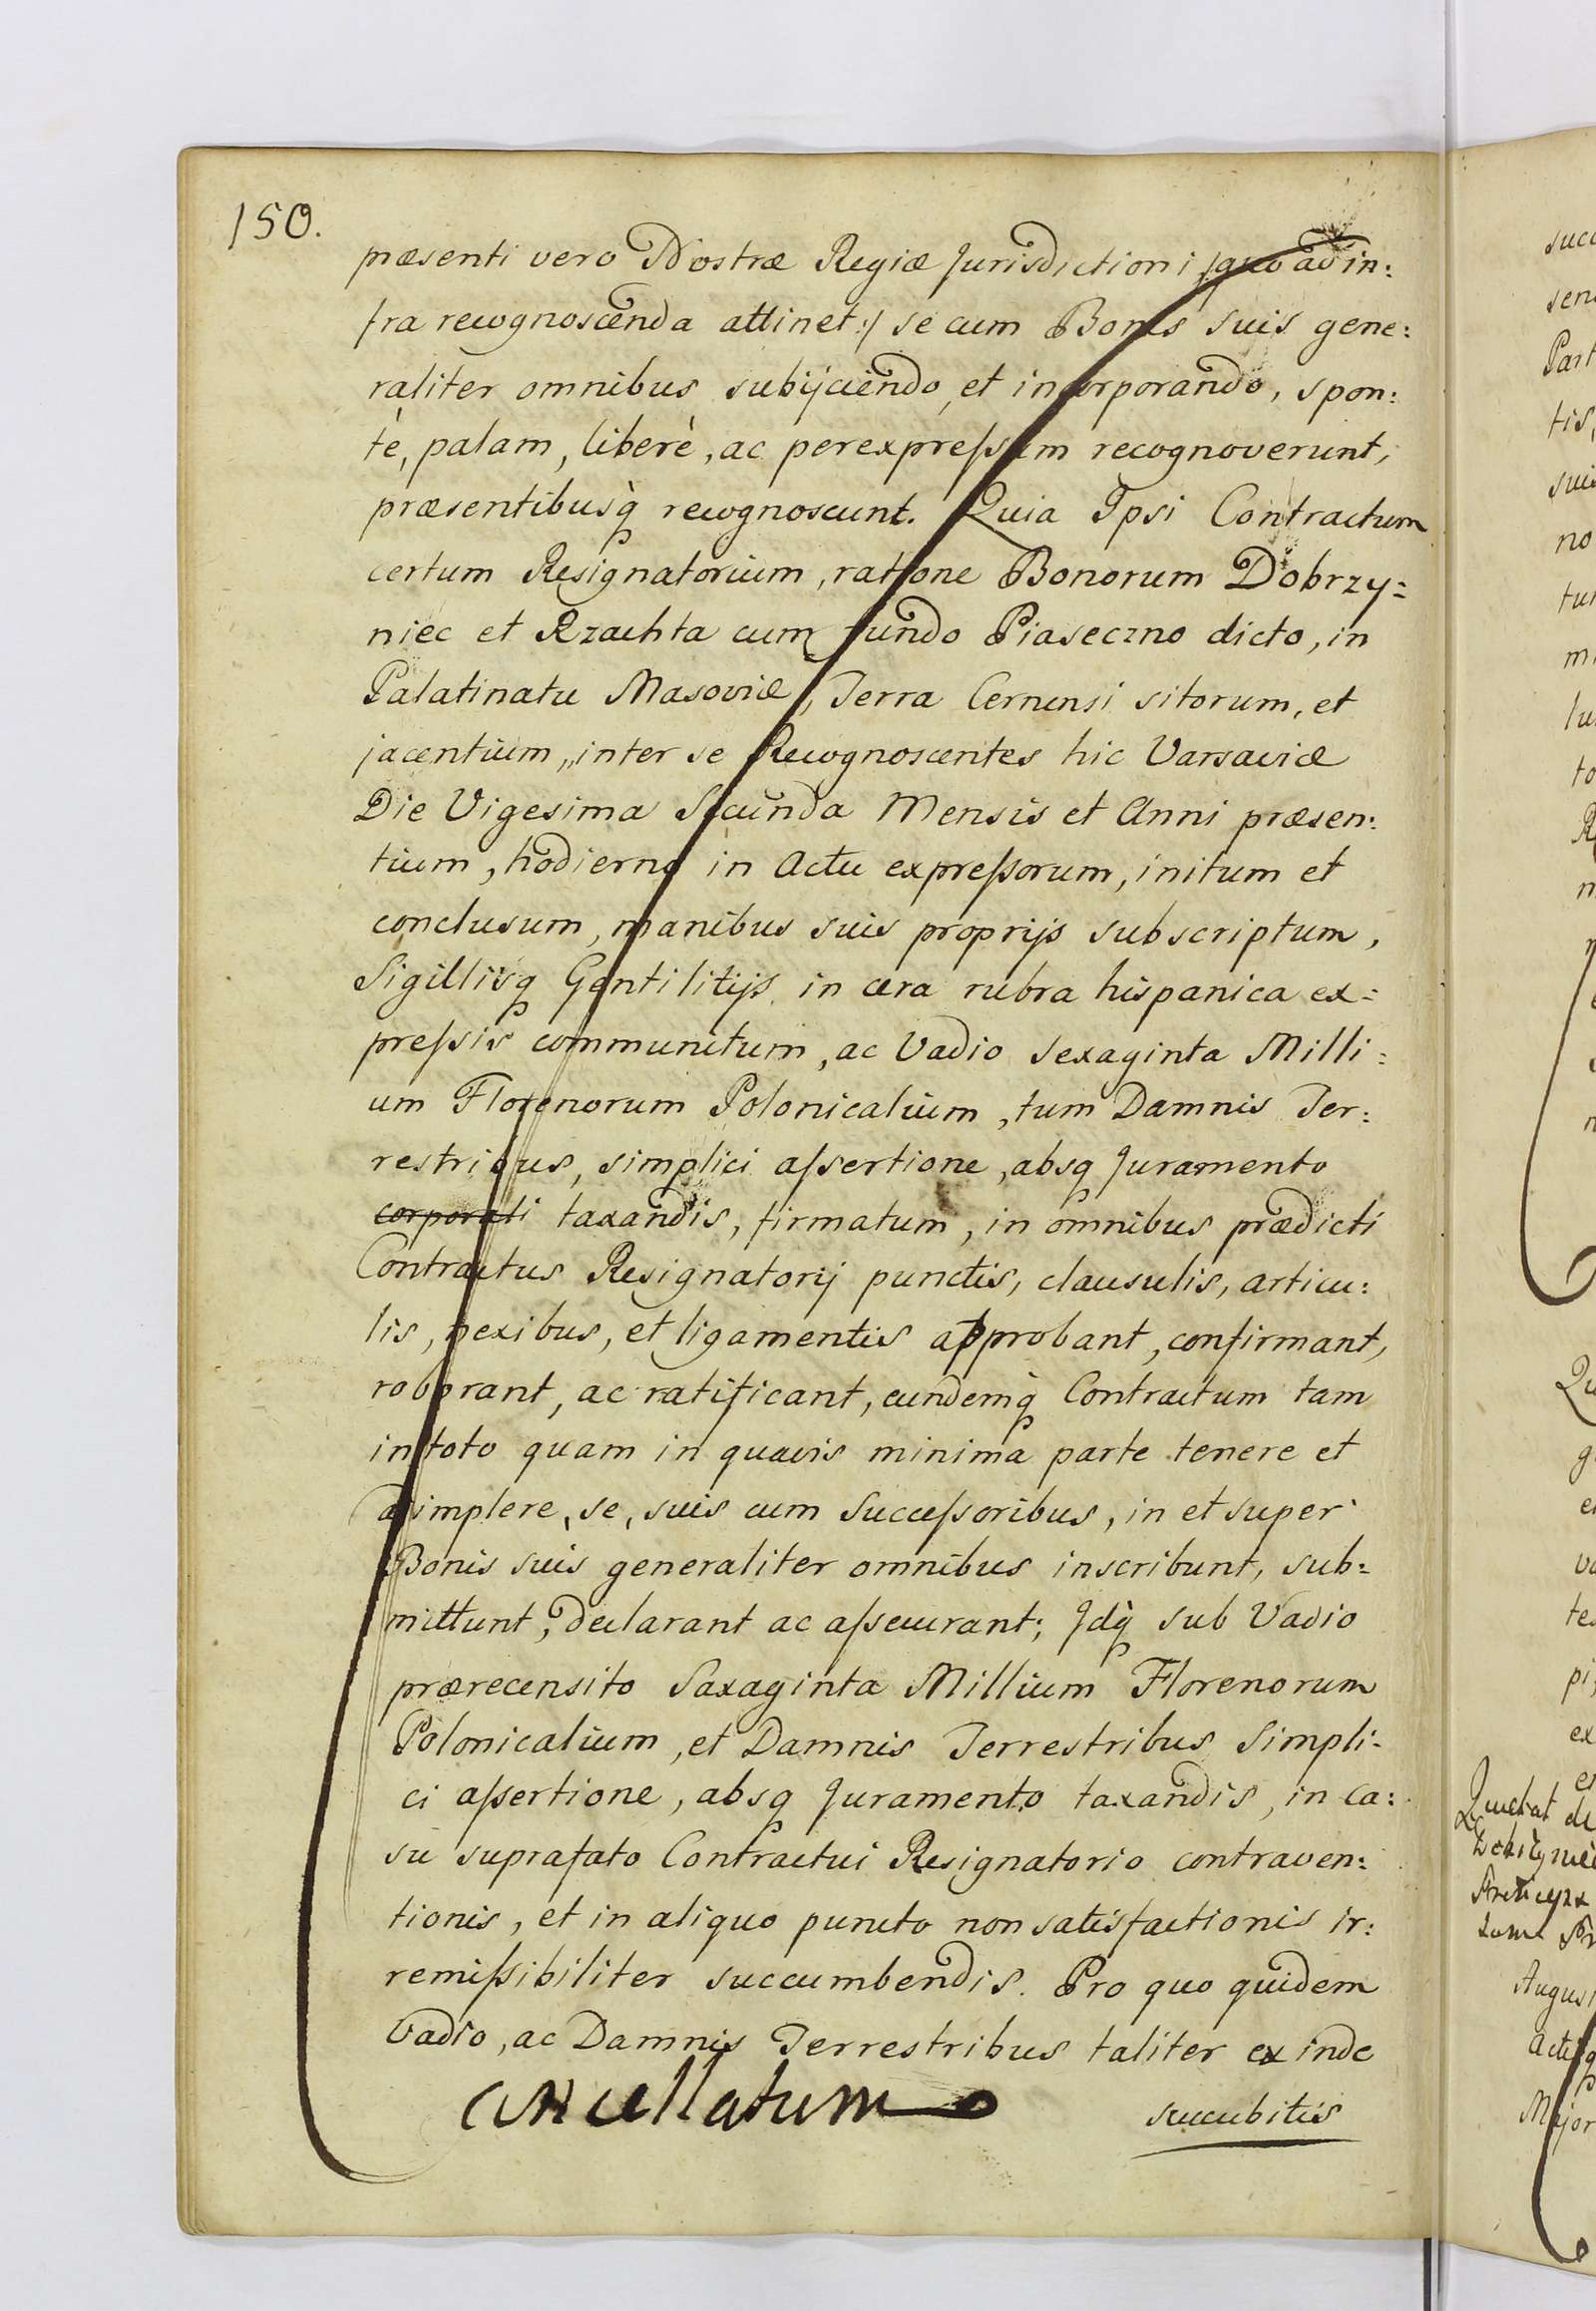 150.
præsenti vero Nostræ Regiæ Jurisdictioni /:quo ad in:
fra recognoscenda attinet:/ se cum Bonis suis gene:
raliter omnibus subijciendo, et incorporando, spon:
tè, palam, liberè, ac per expreſsum recognoverunt,
præsentibusq̀ recognoscunt. Quia Ipsi Contractum
certum Resignatorium, ratione Bonorum Dobrzy=
niec et Rzachta cum fundo Piaseczno dicto, in
Palatinatu Masoviæ, Terra Cernensi sitorum, et
jacentium, inter se Recognoscentes hic Varsaviæ
Die Vigesima Secunda Mensis et Anni præsen:
tium, hodierno in Actu expreſsorum, initum et
conclusum, manibus suis proprijs subscriptum,
Sigillisq Gentilitijs in cera rubra hispanica ex=
preſsis communitum, ac Vadio sexaginta Milli:
um Florenorum Polonicalium, tum Damnis Ter:
restribus, simplici aſsertione, absq Juramento
corporali taxandis, firmatum, in omnibus prædicti
Contractus Resignatorij punctis, clausulis, articu:
lis, nexibus, et ligamentis approbant, confirmant,
roborant, ac ratificant, eundemq̀ Contractum tam
in toto quam in quavis minima parte tenere et
adimplere, se, suis cum Succeſsoribus, in et super
Bonis suis generaliter omnibus inscribunt, sub=
mittunt, declarant ac aſsecurant; Idq̀ sub Vadio
prærecensito Saxaginta Millium Florenorum
Polonicalium, et Damnis Terrestribus Simpli=
ci aſsertione, absq Juramento taxandis, in ca:
su suprafato Contractui Resignatorio contraven:
tionis, et in aliquo puncto non satisfactionis ir:
remiſsibiliter succumbendis. Pro quo quidem
Vadio, ac Damnis Terrestribus taliter ex inde
Cancellatum
succubitis